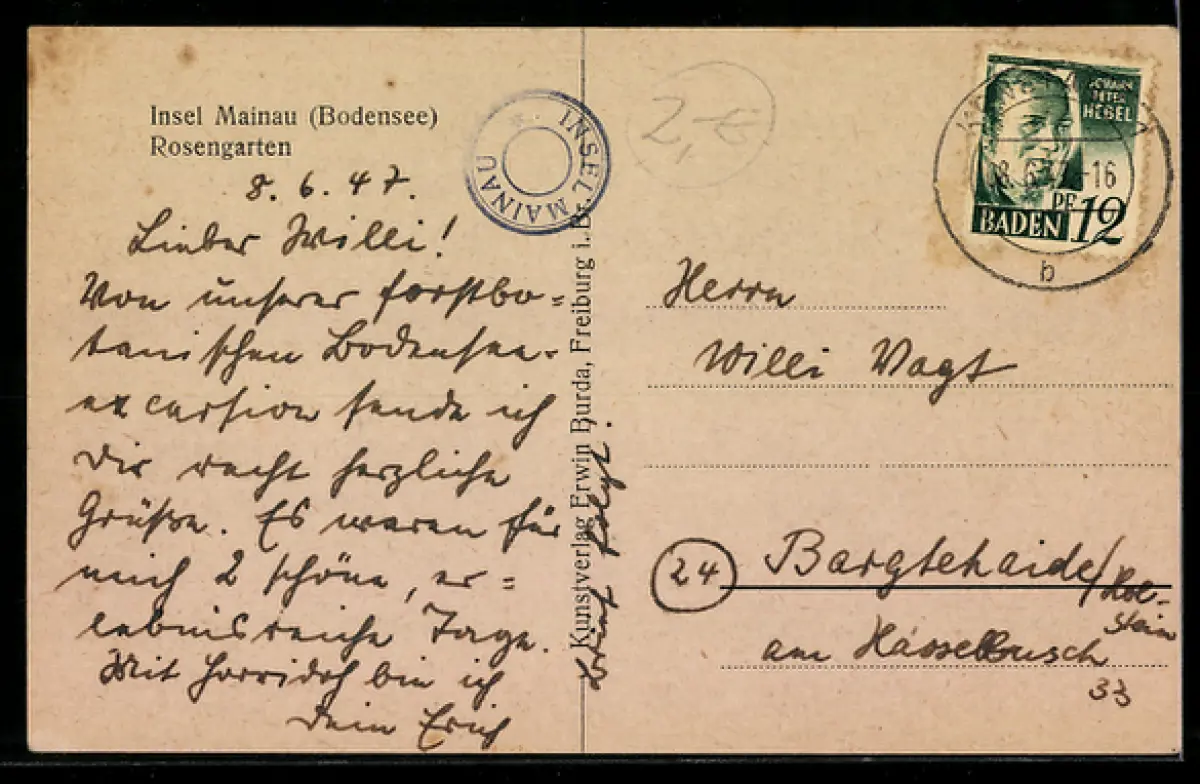 Insel Mainau (Bodensee)
Rosengarten
8. 6. 47.
Lieber Willi!
Von unserer forstbo=
tanischen Bodensee-
excursion sende ich
Dir recht herzliche
Grüße. Es waren für
mich 2 schöne, er=
lebnisreiche Tage.
Mit Horridoh bin ich
Dein Erich
Brief folgt.
INSEL MAINAU
Kunstverlag Erwin Burda, Freiburg i. Br.
2,-€
JOHANN
PETER
HEBEL
PF 12
BADEN
8.6.47-16
b
Herrn
Willi Vagt
24
Bargteheide/Hol-
stein
am Hasselbusch
33